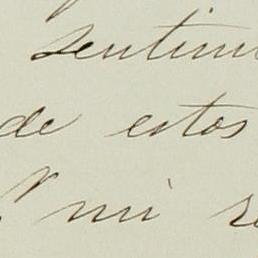 sentim
de estos
mi